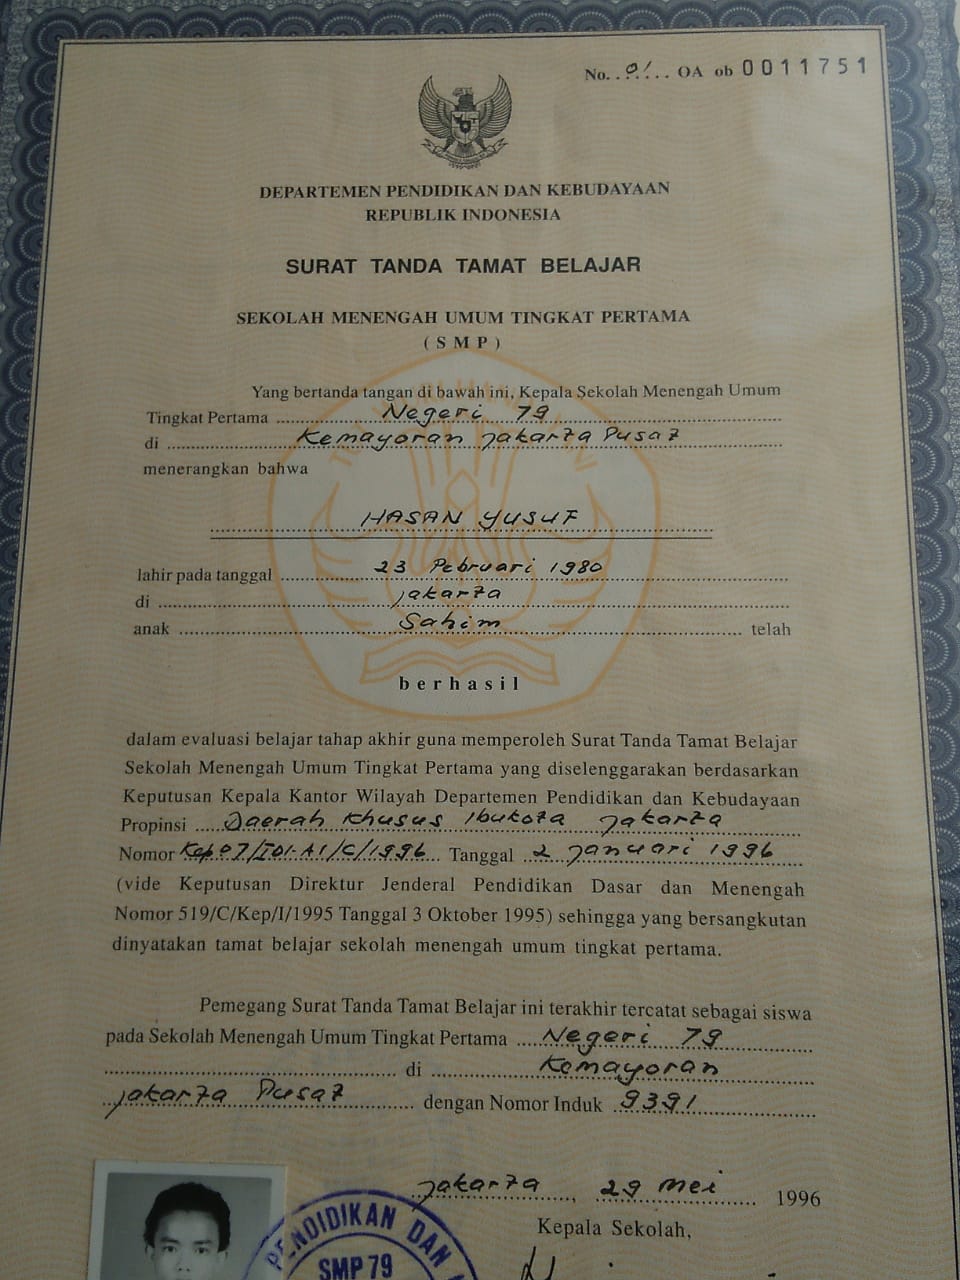 No. .01... OA ob 0011751
DEPARTEMEN PENDIDIKAN DAN KEBUDAYAAN
REPUBLIK INDONESIA
SURAT TANDA TAMAT BELAJAR
SEKOLAH MENENGAH UMUM TINGKAT PERTAMA
( S M P )
Yang bertanda tangan di bawah ini, Kepala Sekolah Menengah Umum
Tingkat Pertama Negeri 79
di Kemayoran Jakarta Pusat
menerangkan bahwa
HASAN YUSUF
lahir pada tanggal 23 Pebruari 1980
di Jakarta
anak Sahim telah
berhasil
dalam evaluasi belajar tahap akhir guna memperoleh Surat Tanda Tamat Belajar
Sekolah Menengah Umum Tingkat Pertama yang diselenggarakan berdasarkan
Keputusan Kepala Kantor Wilayah Departemen Pendidikan dan Kebudayaan
Propinsi Daerah Khusus Ibukota Jakarta
Nomor Kep.07/I01.A1/C/1996 Tanggal 2 Januari 1996
(vide Keputusan Direktur Jenderal Pendidikan Dasar dan Menengah
Nomor 519/C/Kep/I/1995 Tanggal 3 Oktober 1995) sehingga yang bersangkutan
dinyatakan tamat belajar sekolah menengah umum tingkat pertama.
Pemegang Surat Tanda Tamat Belajar ini terakhir tercatat sebagai siswa
pada Sekolah Menengah Umum Tingkat Pertama Negeri 79
di Kemayoran
Jakarta Pusat dengan Nomor Induk 9391
Jakarta, 29 Mei 1996
Kepala Sekolah,
PENDIDIKAN DAN
SMP 79